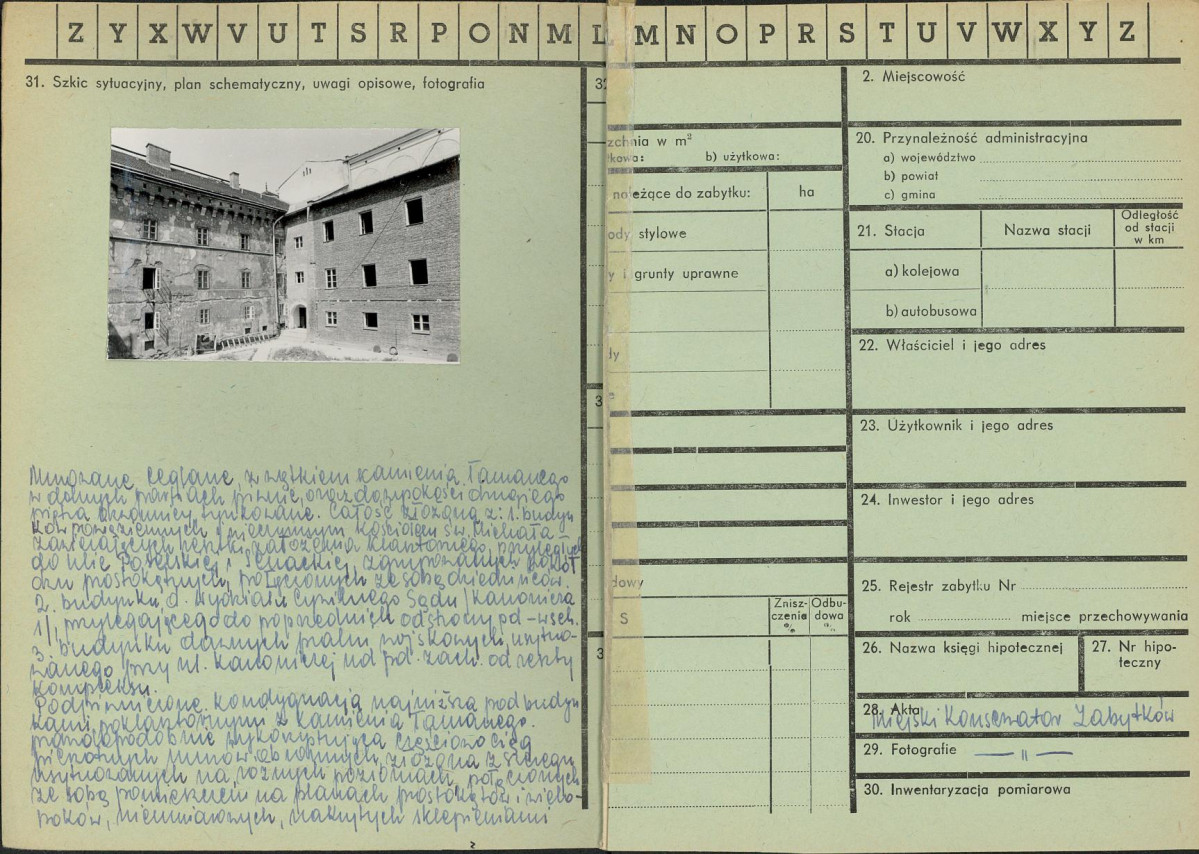 Z Y X W V U T S R P O N M L
31. Szkic sytuacyjny, plan schematyczny, uwagi opisowe, fotografia
Murowane, ceglane, z użyciem kamienia łamanego
w dolnych partiach piwnic, oraz do wysokości drugiego
piętra okrągłej tynkowane. Całość złożona z: 1. budyn
ków powięziennych i nieczynnym kościołem św. Michała –
zawierających resztki założenia klasztornego, przyległych
do ulic Poselskiej i Senackiej, zgrupowanych wokół
dwu prostokątnych, połączonych ze sobą dziedzińców.
2. budynku d. Wydziału Cywilnego Sądu /Kanonicza
1/, przylegającego do poprzednich od strony pd-wsch.
3. budynku dawnych pralni wojskowych, usytuo-
wanego przy ul. Kanoniczej nd pd. zach. od reszty
kompleksu.
Podpiwniczone. Kondygnacja najniższa pod budyn
kami poklasztornymi z kamienia łamanego.
prawdopodobnie wykorzystująca częściowo ciąg
pierwotnych murów obronnych, złożona z szeregu
usytuowanych na różnych poziomach, połączonych
ze sobą pomieszczeń na planach prostokątów i wielo-
boków, nieumiarowych, nakrytych sklepieniami
2
32
3
3
M N O P R S T U V W X Y Z
zchnia w m²
kowa: b) użytkowa:
należące do zabytku: ha
ody stylowe
y i grunty uprawne
dy
dowy
S
Znisz-
czenie
%
Odbu-
dowa
%
2. Miejscowość
20. Przynależność administracyjna
a) województwo
b) powiat
c) gmina
21. Stacja
Nazwa stacji
Odległość
od stacji
w km
a) kolejowa
b) autobusowa
22. Właściciel i jego adres
23. Użytkownik i jego adres
24. Inwestor i jego adres
25. Rejestr zabytku Nr
rok miejsce przechowywania
26. Nazwa księgi hipotecznej
27. Nr hipo-
teczny
28. Akta
Miejski Konserwator Zabytków
29. Fotografie — " —
30. Inwentaryzacja pomiarowa